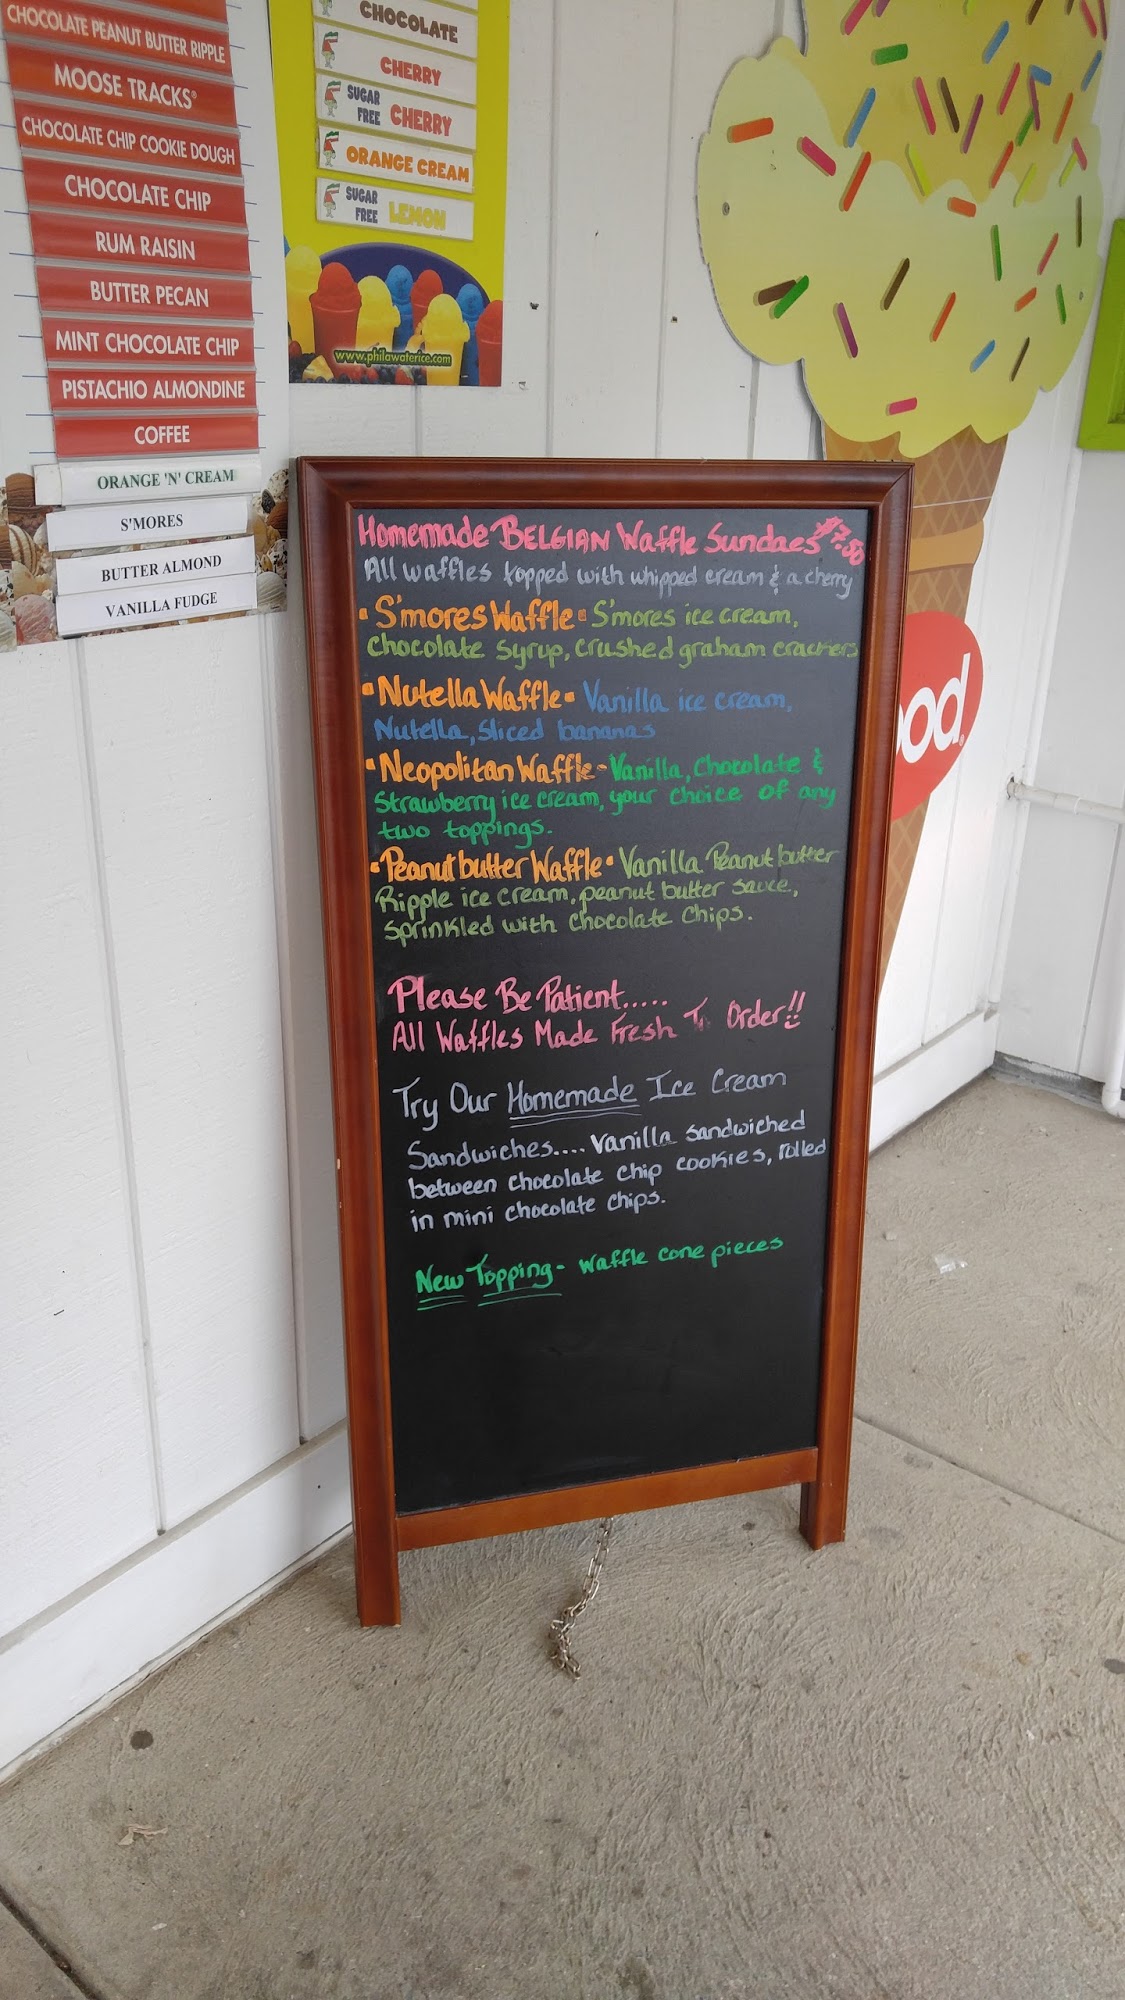 CHOCOLATE PEANUT BUTTER RIPPLE
MOOSE TRACKS®
CHOCOLATE CHIP COOKIE DOUGH
CHOCOLATE CHIP
RUM RAISIN
BUTTER PECAN
MINT CHOCOLATE CHIP
PISTACHIO ALMONDINE
COFFEE
ORANGE 'N' CREAM
S'MORES
BUTTER ALMOND
VANILLA FUDGE
CHOCOLATE
CHERRY
SUGAR FREE CHERRY
ORANGE CREAM
SUGAR FREE LEMON
www.philawaterice.com
Homemade BELGIAN Waffle Sundaes $7.50
All waffles topped with whipped cream & a cherry
• S'mores Waffle • S'mores ice cream,
chocolate syrup, crushed graham crackers
• Nutella Waffle • Vanilla ice cream,
Nutella, sliced bananas
• Neopolitan Waffle - Vanilla, Chocolate &
Strawberry ice cream, your choice of any
two toppings.
• Peanut butter Waffle • Vanilla Peanut butter
Ripple ice cream, peanut butter sauce,
sprinkled with chocolate chips.
Please Be Patient.....
All Waffles Made Fresh To Order!!
Try Our Homemade Ice Cream
Sandwiches.... Vanilla sandwiched
between chocolate chip cookies, rolled
in mini chocolate chips.
New Topping - waffle cone pieces